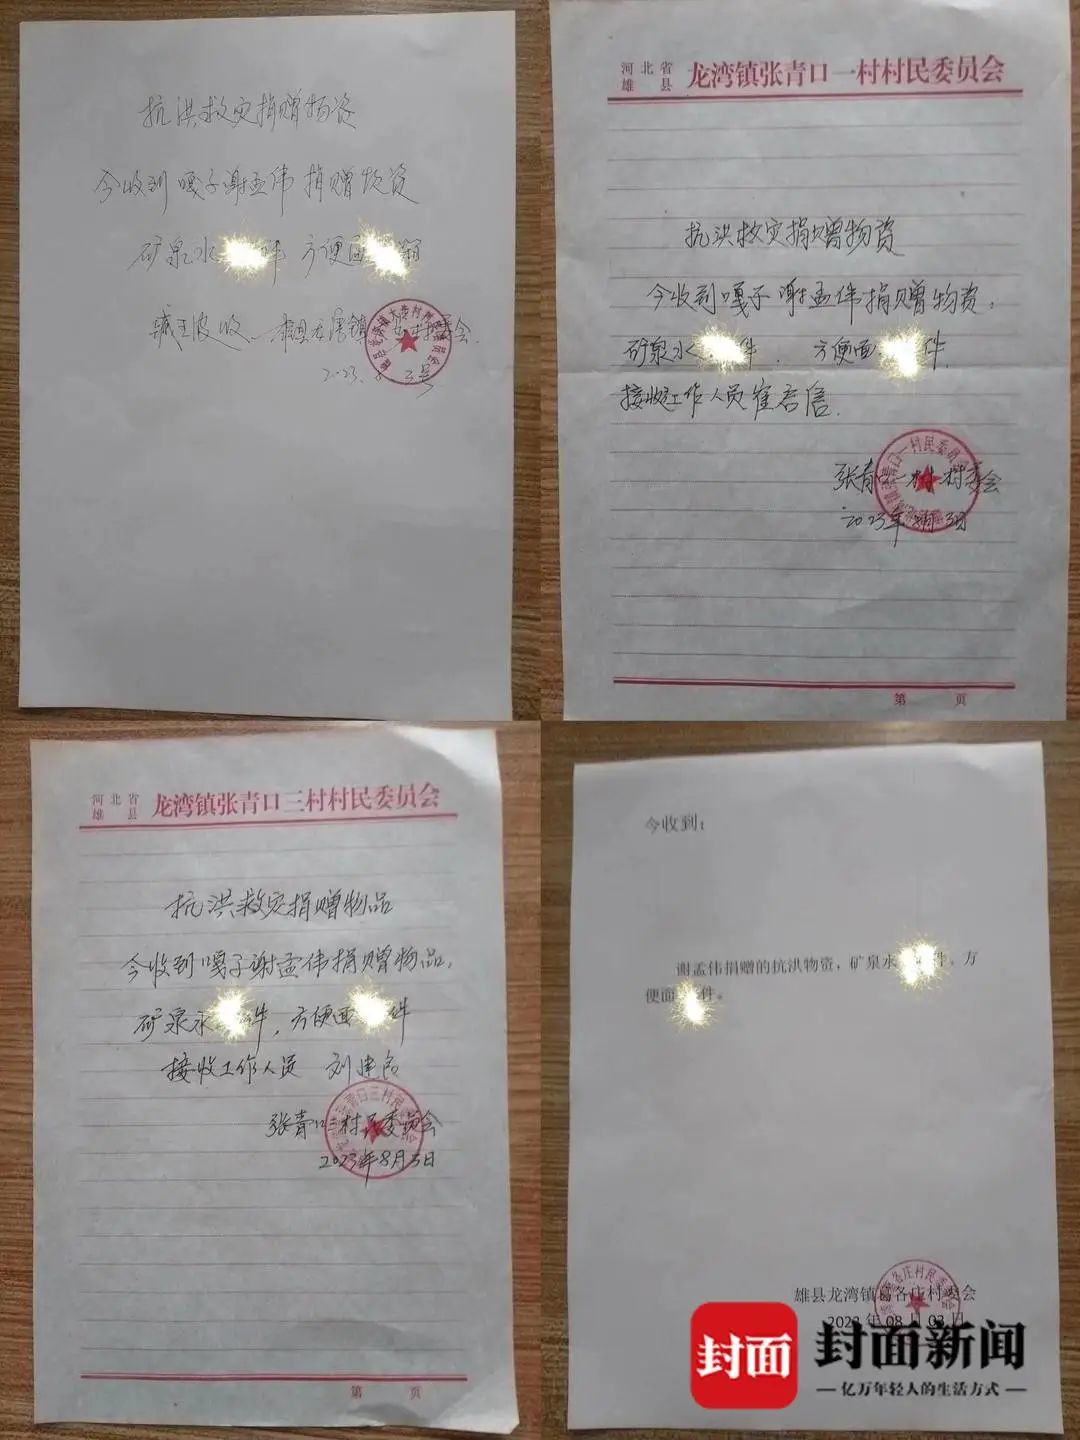 抗洪救灾捐赠物资
今收到嘎子谢孟伟捐赠物资
矿泉水 件 方便面
收
2023.
河北省
雄县
龙湾镇张青口一村村民委员会
抗洪救灾捐赠物资
今收到嘎子谢孟伟捐赠物资.
矿泉水 件. 方便面 件.
接收工作人员崔君信.
张青口一村村委会
2023年8月3日
第 页
河北省
雄县
龙湾镇张青口三村村民委员会
抗洪救灾捐赠物品
今收到嘎子谢孟伟捐赠物品.
矿泉水 件, 方便面 件
接收工作人员 刘建
张青口三村民委员会
2023年8月3日
第 页
今收到:
谢孟伟捐赠的抗洪物资, 矿泉水 件、方
便面 件。
雄县龙湾镇葛各庄村委会
2023年08月03日
封面
封面新闻
亿万年轻人的生活方式